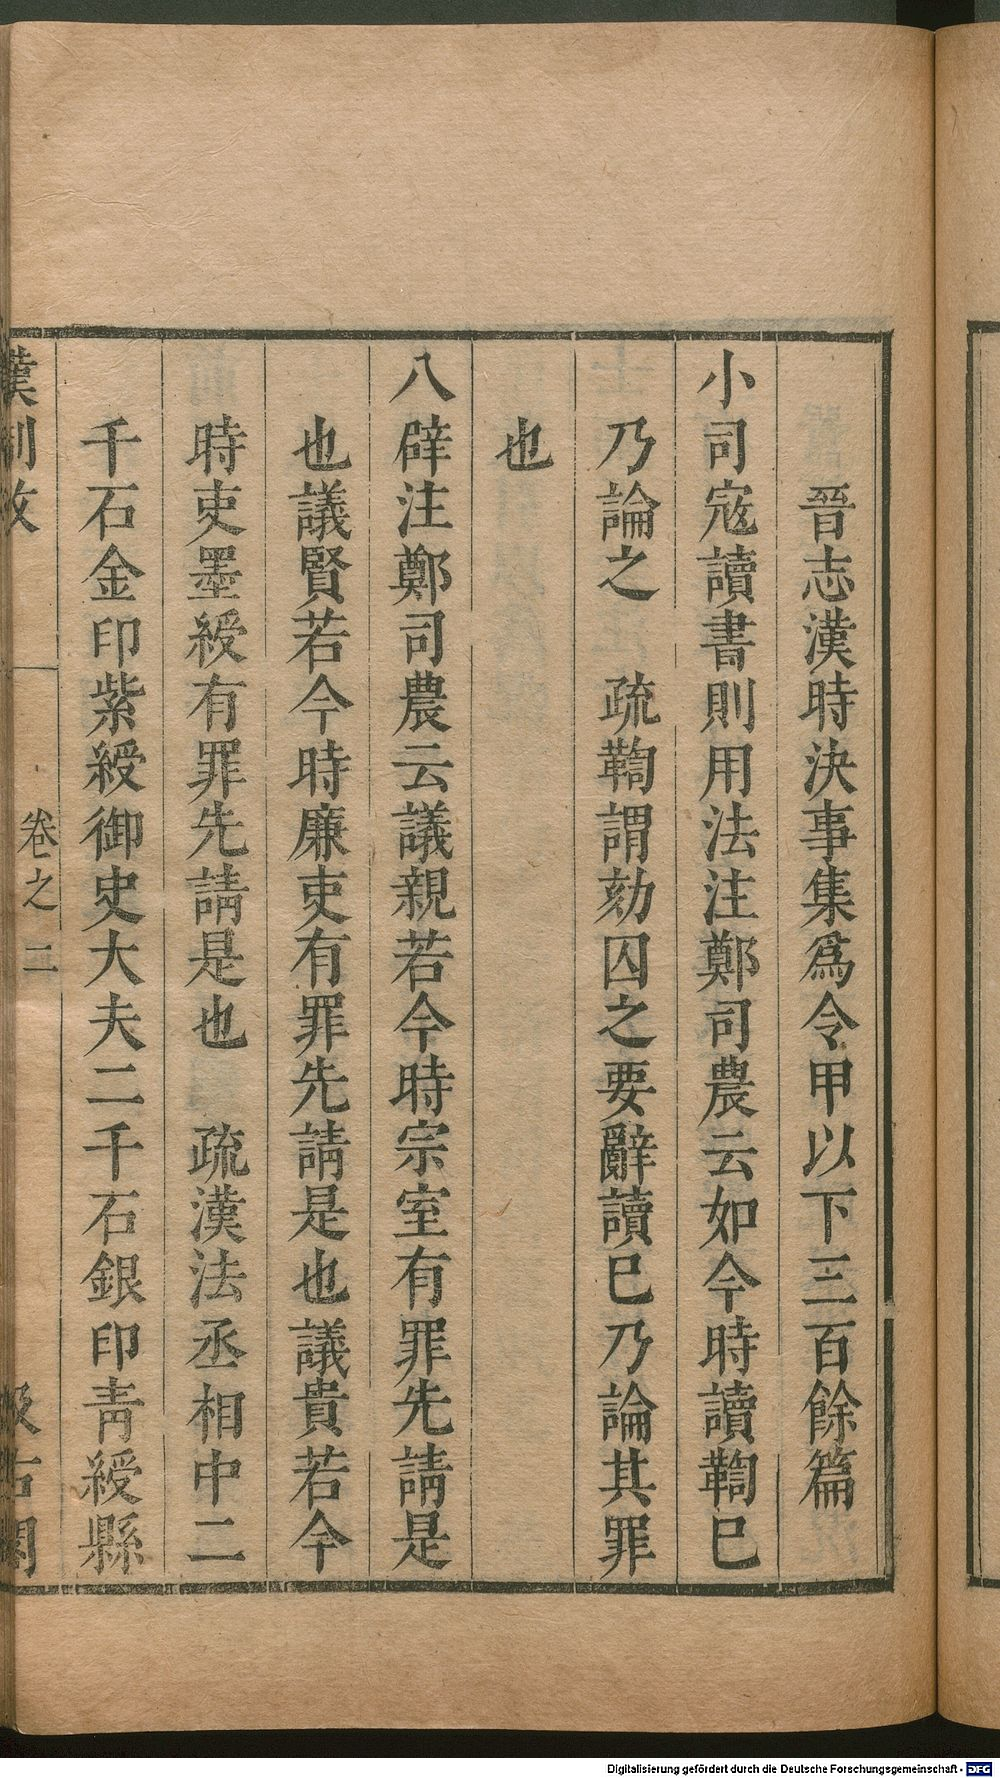 晉志漢時決事集爲令甲以下三百餘篇
小司寇讀書則用法注鄭司農云如今時讀鞫已
乃論之 疏鞫謂劾囚之要辭讀已乃論其罪
也
八辟注鄭司農云議親若今時宗室有罪先請是
也議賢若今時廉吏有罪先請是也議貴若今
時吏墨綬有罪先請是也 疏漢法丞相中二
千石金印紫綬御史大夫二千石銀印青綬縣
漢制攷 卷之二 汲古閣
Digitalisierung gefördert durch die Deutsche Forschungsgemeinschaft - DFG